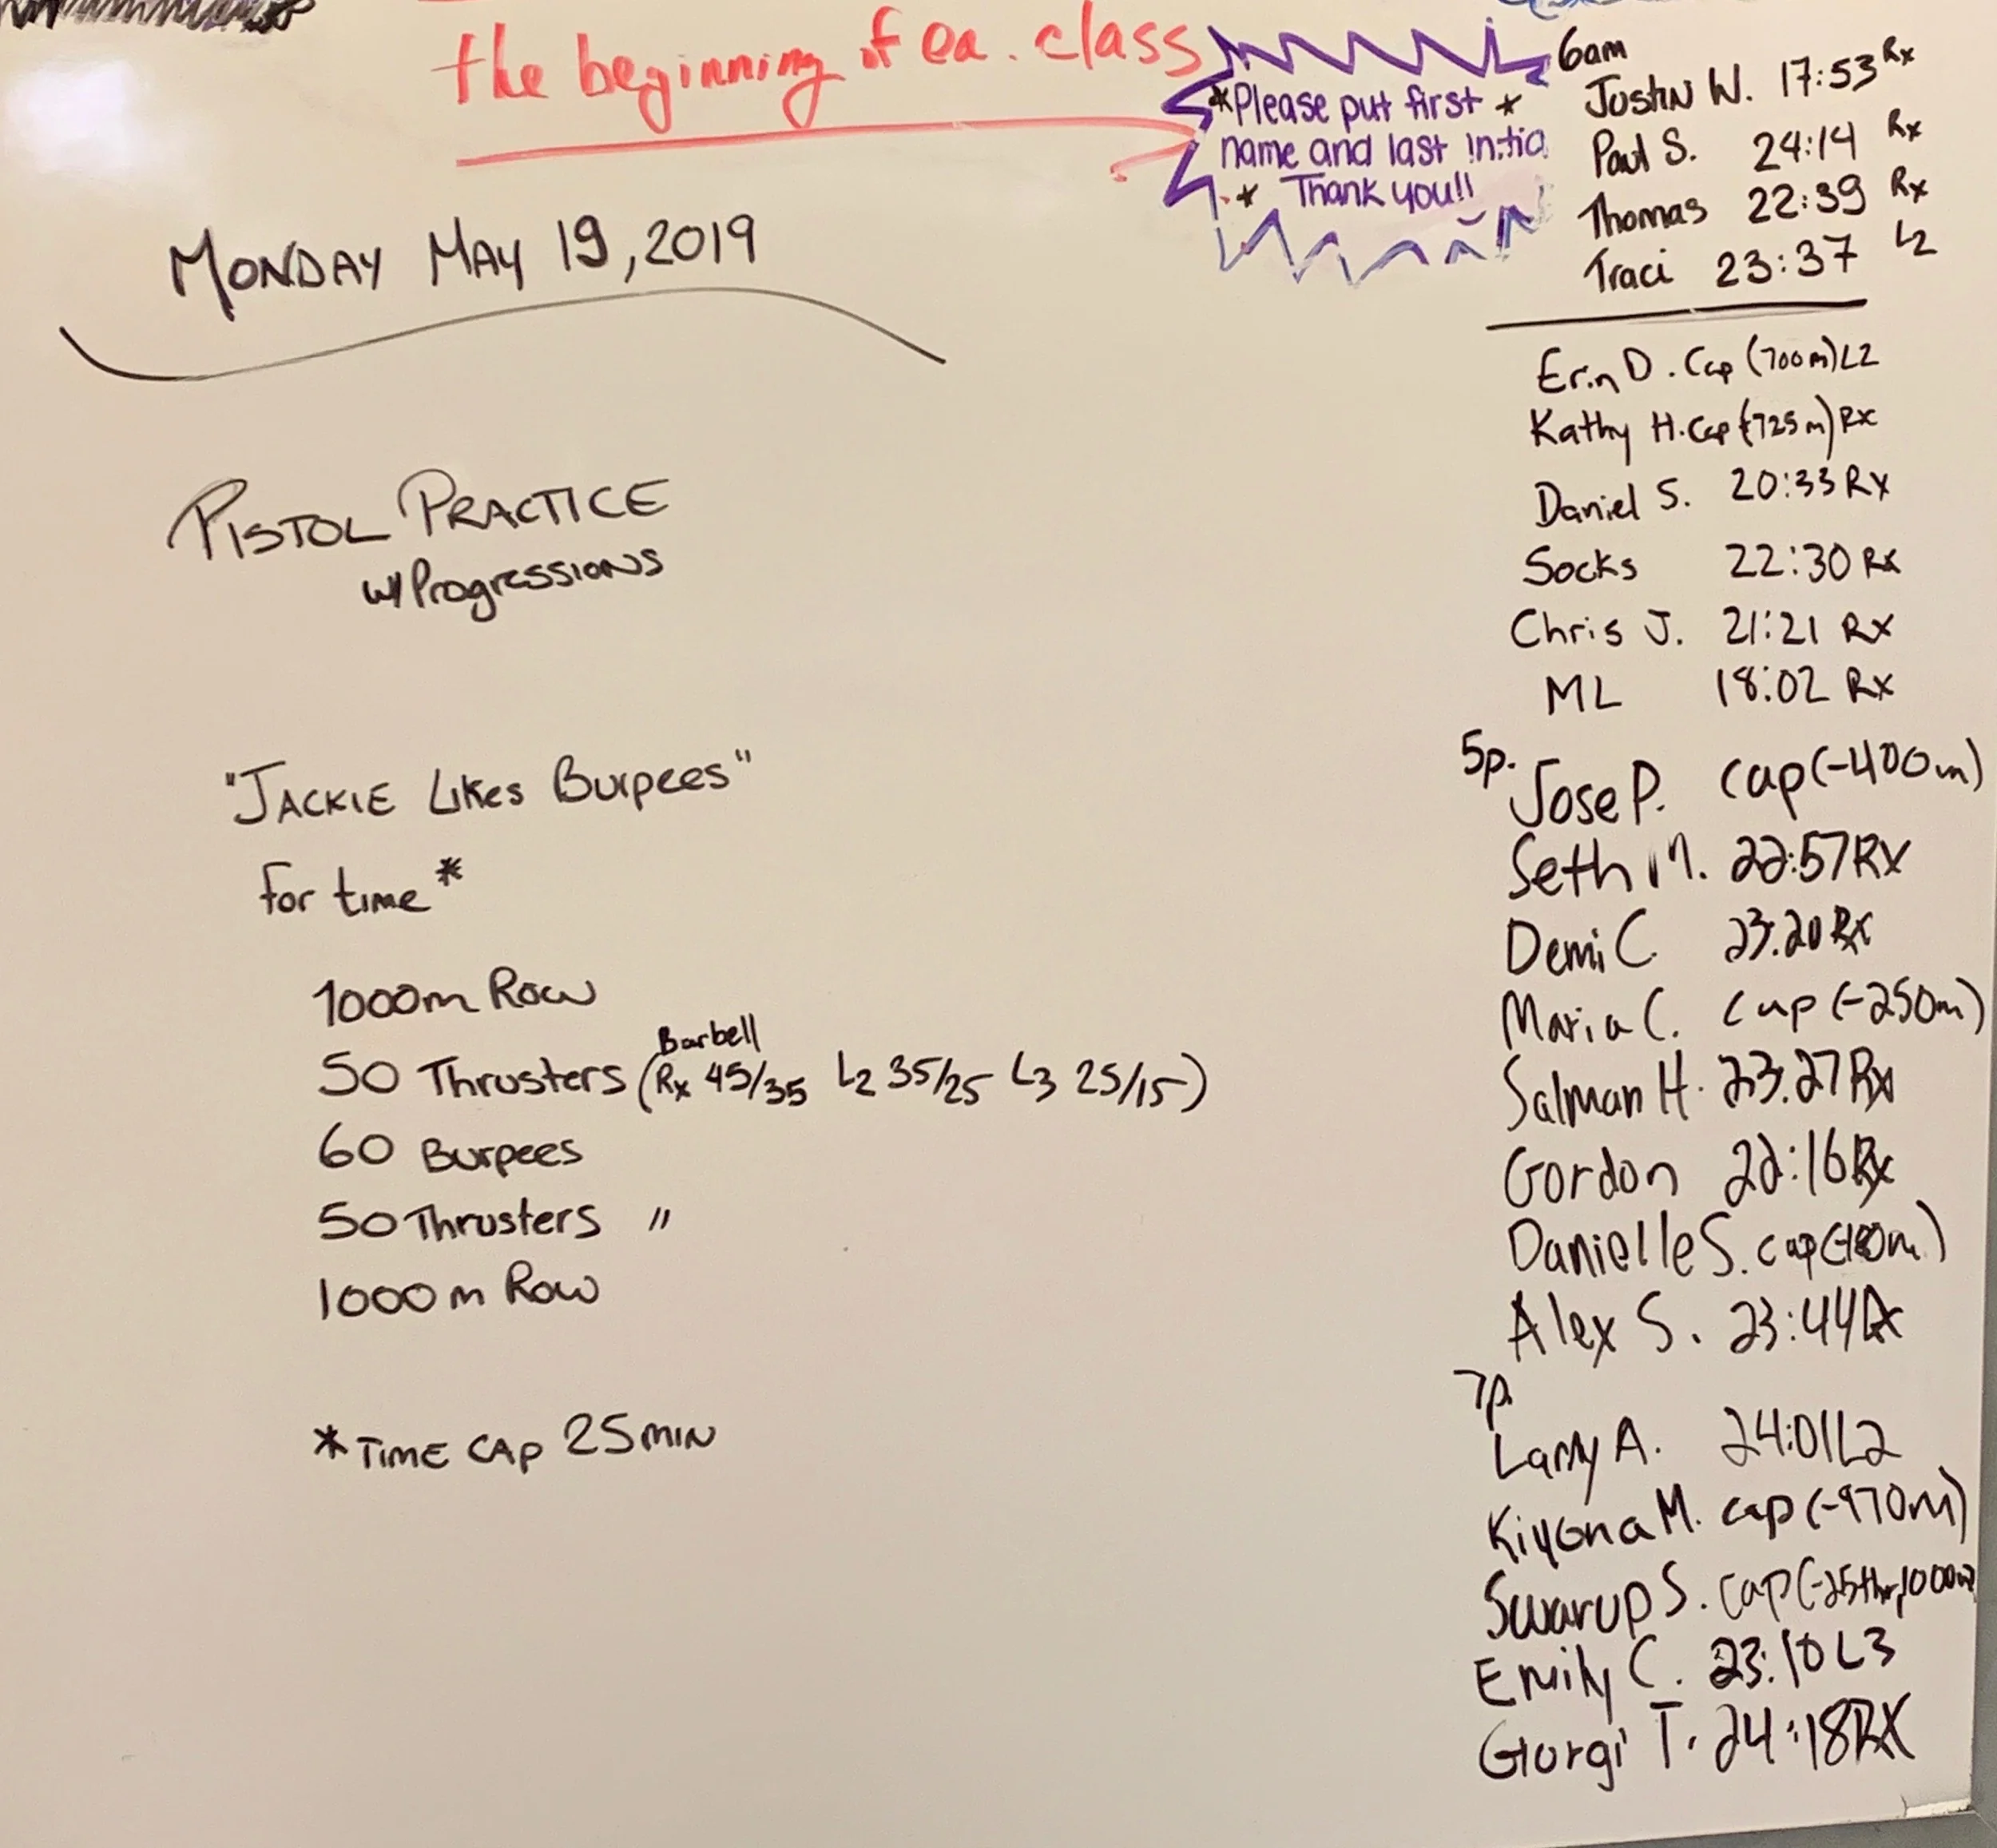 the beginning of ea. class
*Please put first *
name and last initia
* Thank you!!
MONDAY MAY 19, 2019
PISTOL PRACTICE
w/ Progressions
"JACKIE Likes Burpees"
for time *
1000m Row
Barbell
50 Thrusters (Rx 45/35 L2 35/25 L3 25/15)
60 Burpees
50 Thrusters "
1000m Row
* TIME CAP 25 MIN
6am
Justin W. 17:53 Rx
Paul S. 24:14 Rx
Thomas 22:39 Rx
Traci 23:37 L2
Erin D. Cap (700m) L2
Kathy H. Cap (725m) Rx
Daniel S. 20:33 Rx
Socks 22:30 Rx
Chris J. 21:21 Rx
ML 18:02 Rx
5p.
Jose P. cap (-400m)
Seth M. 22:57 RX
Demi C. 23:20 Rx
Maria C. cap (-250m)
Salman H. 23:27 Rx
Gordon 22:16 Rx
Danielle S. cap
Alex S. 23:44
7p.
Larry A. 24:01 L2
Kiyona M. cap (-970m)
Swarup S. cap (-25thr, 1000m
Emily C. 23:10 L3
Giorgi T. 24:18 RX